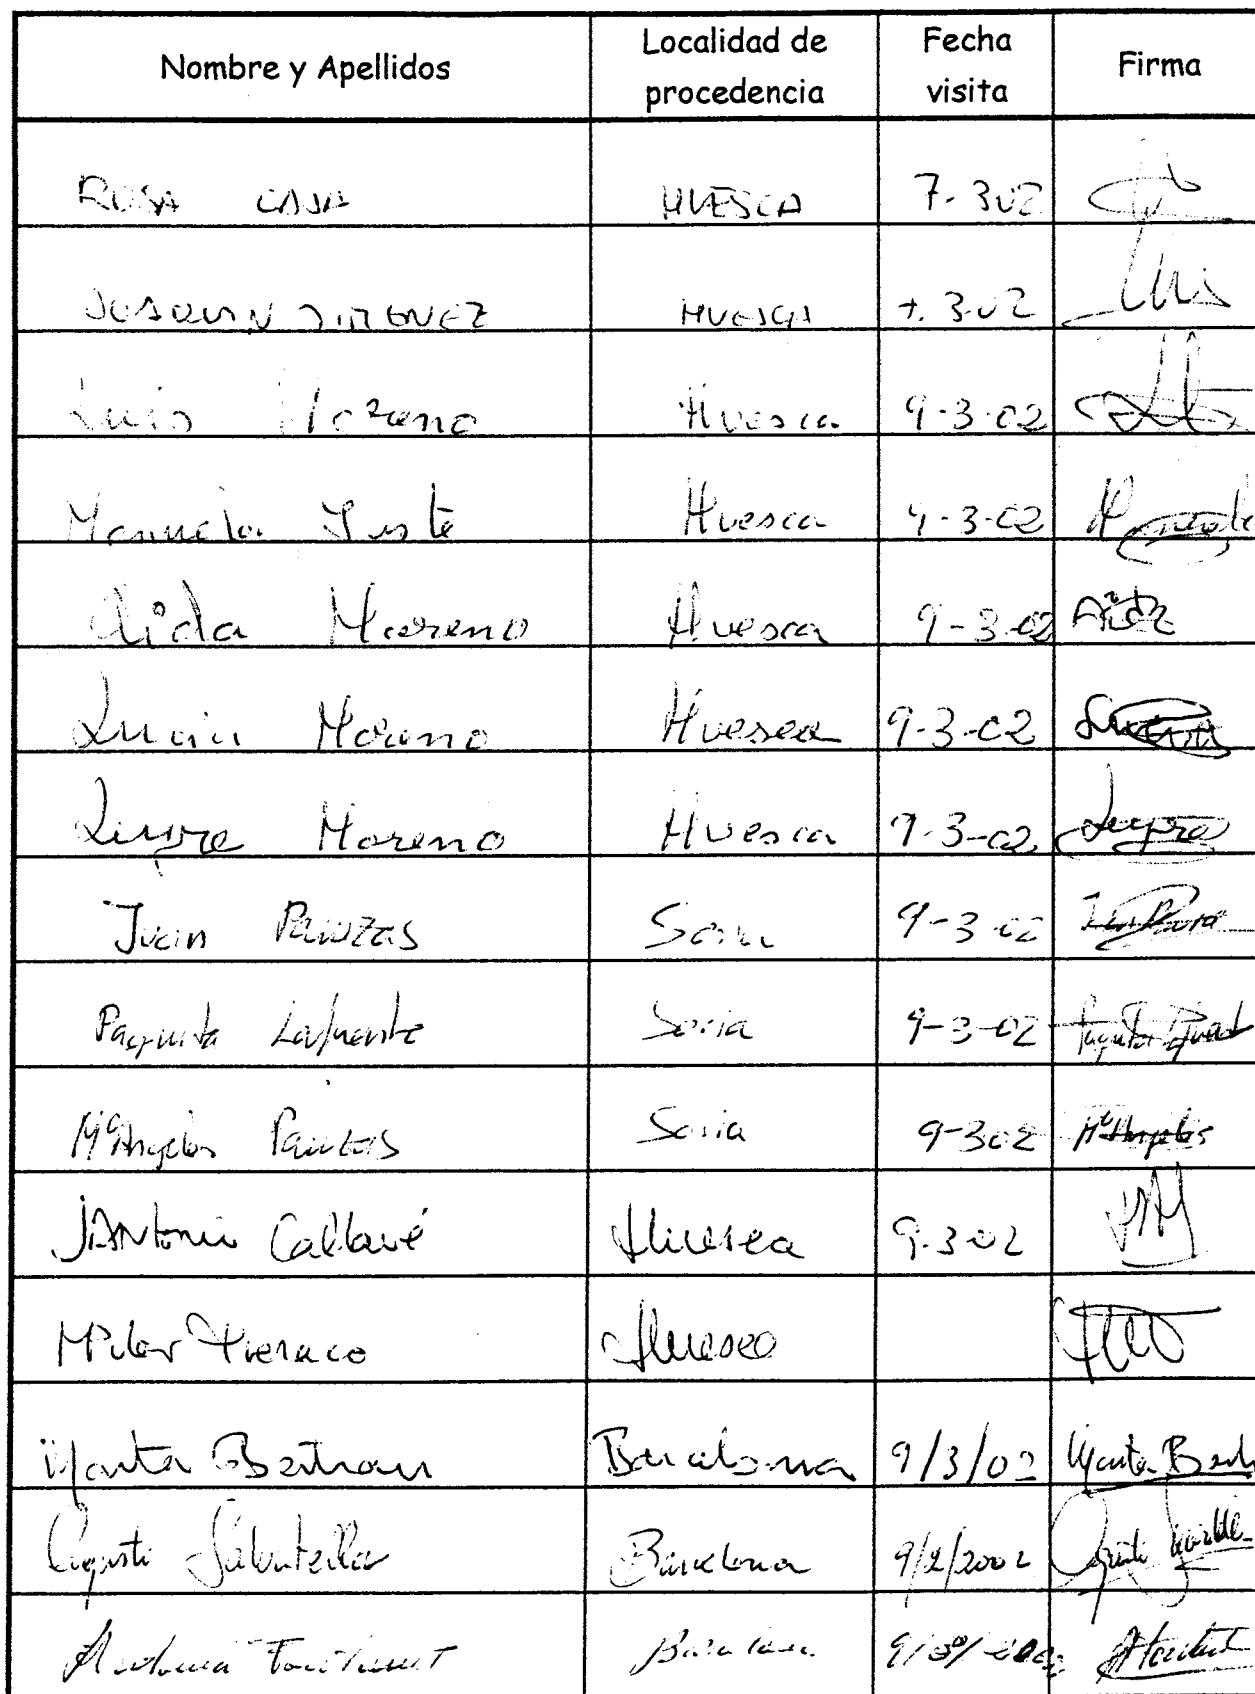 Nombre y Apellidos Localidad de procedencia Fecha visita Firma
ROSA CAJA HUESCA 7-3-02
JOAQUIN JIMENEZ HUESCA 7.3-02
Luis Moreno Huesca 9-3-02
Manuela Yuste Huesca 9-3-02 Manuela
Aida Moreno Huesca 9-3-02 Aida
Lucía Moreno Huesca 9-3-02 Lucía
Leyre Moreno Huesca 9-3-02 Leyre
Juan Soria 9-3-02
Paquita Lafuente Soria 9-3-02 Paquita
Mª Angeles Soria 9-302 Mª Angeles
J. Antonio Callavé Huesca 9.3-02
MPilar Huesca
Marta Bertran Barcelona 9/3/02 Marta
Agustí Sabatella Barcelona 9/2/2002
Antonia Barcelona